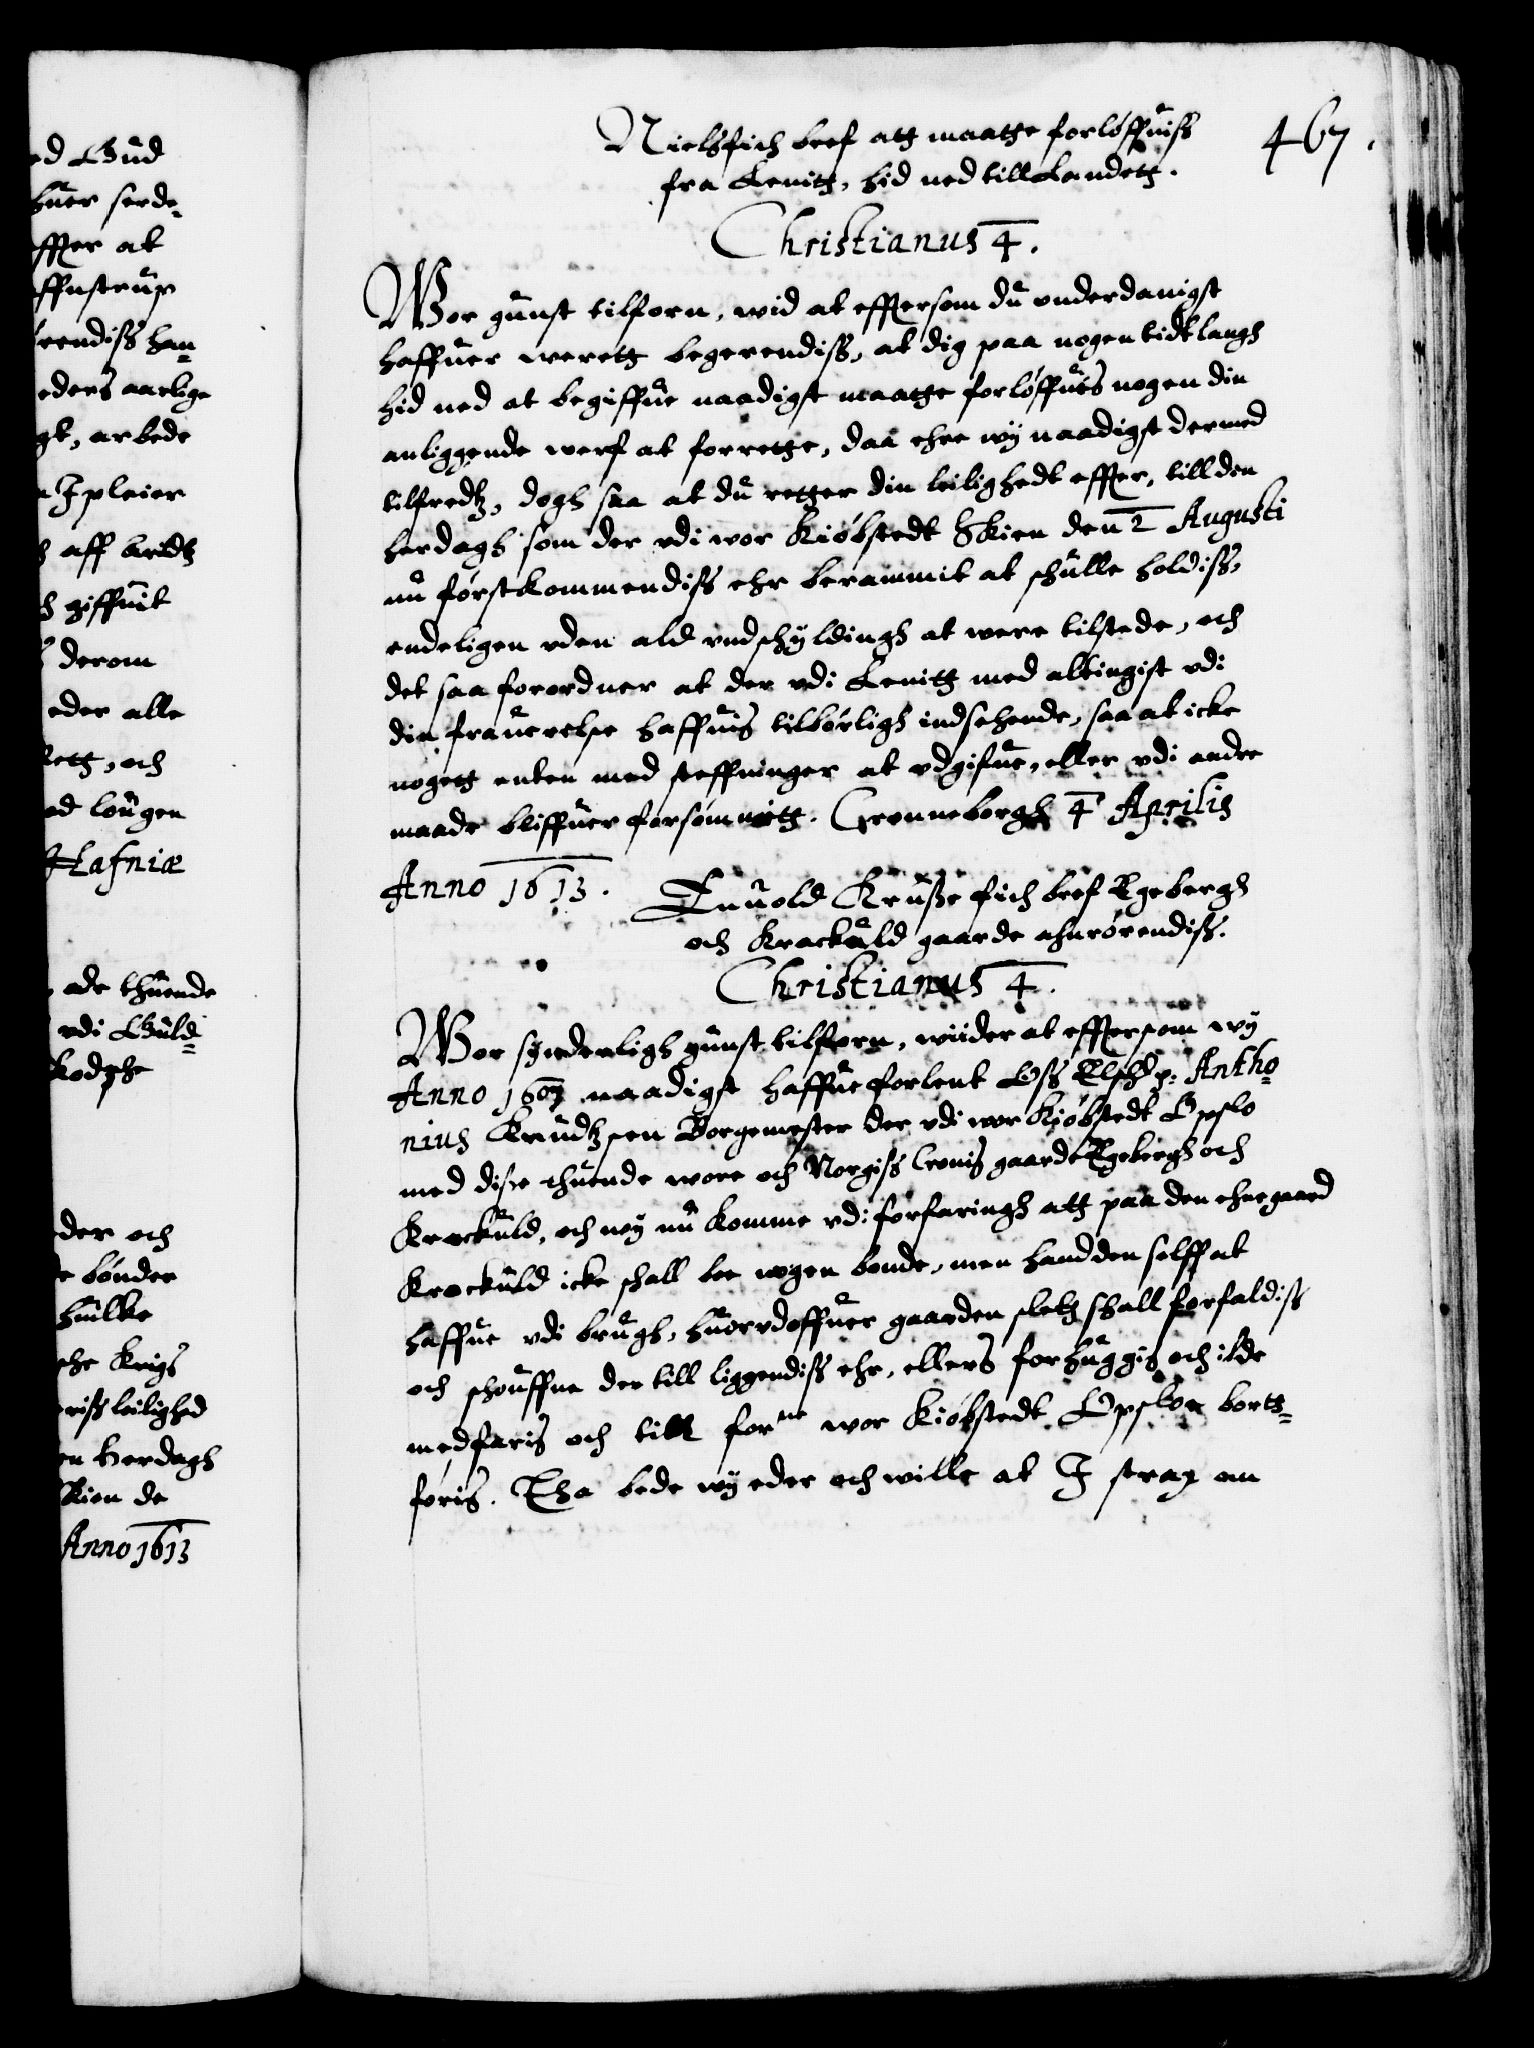 ed Gud
huer serde-
effter at
effustrup
rendiss han-
eders aarlige
gt, arbede
n I pleier
aff
giffuit
derom
eder alle
rett, och
ad lougen
Hafniæ
ade thuende
vdi Guld-
skodghe
der och
e bönder
huilke
sche Krigs
eriss leilighed
en Herdagh
Skien de
Anno 1613
467.
Niels fich bref att maatte forlöffuiss
fra Lenitt, hid ned till Landett.
Christianus 4.
Wor gunst tilforn, wid at effterson du vnderdanigst
haffuer werett begerendiss, at dig paa nogen tidt langh
hid ned at begiffue naadigst maatte forlöffues nogen din
anliggende werf at forrette, daa ehre wy naadigst dermed
tilfredtz, dogh saa at du retter din leilighedt effter, till den
herdagh som der vdi wor Kiöbstedt Skien den 2 Augusti
nu förstkommendiss ehr berammit at schulle holdiss,
endeligen vden ald vndschyldingh at were tilstede, och
det saa forordner at der vdi Lenitt med altingist vdi
din frauerelse haffuis tilbörligh indsehende, saa at icke
nogett enten med steffninger at vdgifue, eller vdi andre
maade bliffuer forsömmitt. Cronneborgh 4 Aprilis
Anno 1613.
Enuold Kruse fich bref Egebergh
och Krackuld gaarde ahnrörendiss.
Christianus 4.
Wor synderligh gunst tilforn, wiider at effterson wy
Anno 1607 naadigst haffue forlent Oss Elsch: Antho-
nius Knudtzen Borgemester der vdi wor Kiöbstedt Opslo
med disse thuende wore och Norgiss Cronis gaarde Egebergh och
Krackuld, och wy nu komme vdi forfaringh att paa den ehne gaard
Krackuld icke schall boe nogen bonde, men hand den selff at
haffue vdi brugh, huorudoffuer gaarden slett schall forfaldiss
och schouffue der till liggendiss ehr, ellers forhuggis och ilde
medfaris och till forne wor Kiöbstedt Opsloe bortt-
föris. Tha bede wy eder och wille at I strax an